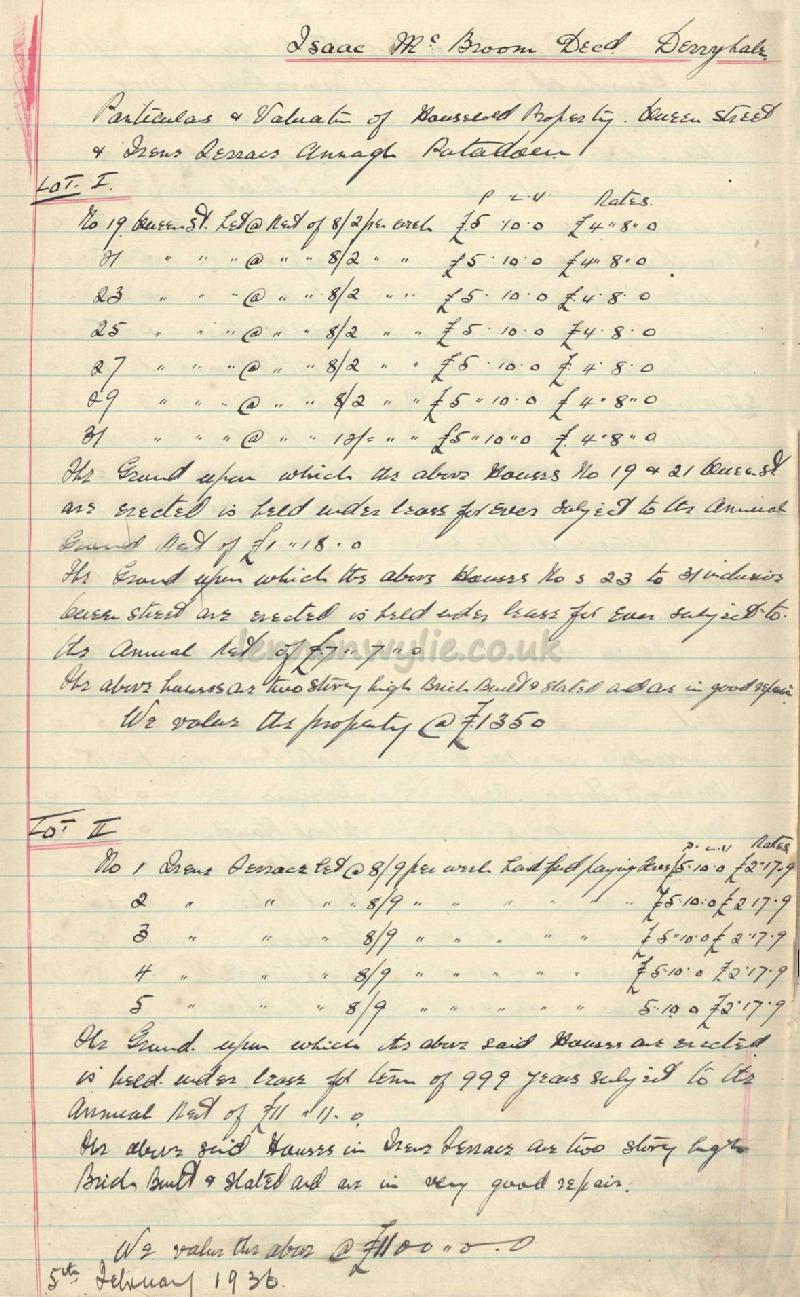 Isaac McBroom Decd. Derryhale
Particulars & Valuation of Household Property. Queen Street
& Irene Terrace Annagh Portadown
LOT. I.
P. L. V. Rates.
No 19 Queen St. Let @ Rent of 8/2 per week £5.10.0 £4"8"0
21 " " " @ " " 8/2 " " £5.10.0 £4"8"0
23 " " " @ " " 8/2 " " £5.10.0 £4.8.0
25 " " " @ " " 8/2 " " £5.10.0 £4.8.0
27 " " " @ " " 8/2 " " £5.10.0 £4.8.0
29 " " " @ " " 8/2 " " £5"10.0 £4"8"0
31 " " " @ " " 12/= " " £5"10"0 £4"8"0
The Ground upon which the above Houses No 19 & 21 Queen St
are erected is held under lease for ever subject to the Annual
Ground Rent of £1"18.0
The Ground upon which the above Houses No s 23 to 31 inclusive
Queen Street are erected is held under lease for ever subject to
the Annual Rent of £7"7"0
lennonwylie.co.uk
The above houses are two story high Brick Built & Slated and are in good repair.
We value the property @ £1350
LOT II
P. L. V. Rates
No 1 Irene Terrace Let @ 8/9 per week £5.10.0 £2.17.9
2 " " " " 8/9 " " " " " " £5.10.0 £2.17.9
3 " " " 8/9 " " " " " £5"10.0 £2"17.9
4 " " " 8/9 " " " " " £5.10.0 £2.17.9
5 " " " 8/9 " " " " " 5.10.0 £2.17.9
The Ground upon which the above said Houses are erected
is held under lease for term of 999 years subject to the
Annual Rent of £11"11.0
The above said Houses in Irene Terrace are two story high
Brick Built & Slated and are in very good repair.
We value the above @ £1100"0.0
5th February 1936.